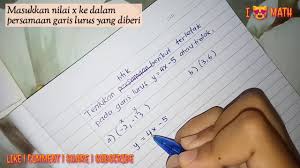 Masukkan nilai x ke dalam
persamaan garis lurus yang diberi
I MATH
titik
Tentukan persamaan berikut terletak
pada garis lurus y = 4x - 5 atau tidak.
x y
a) (-3, -13) b) (3, 6)
y = 4x - 5
LIKE | COMMENT | SHARE | SUBSCRIBE